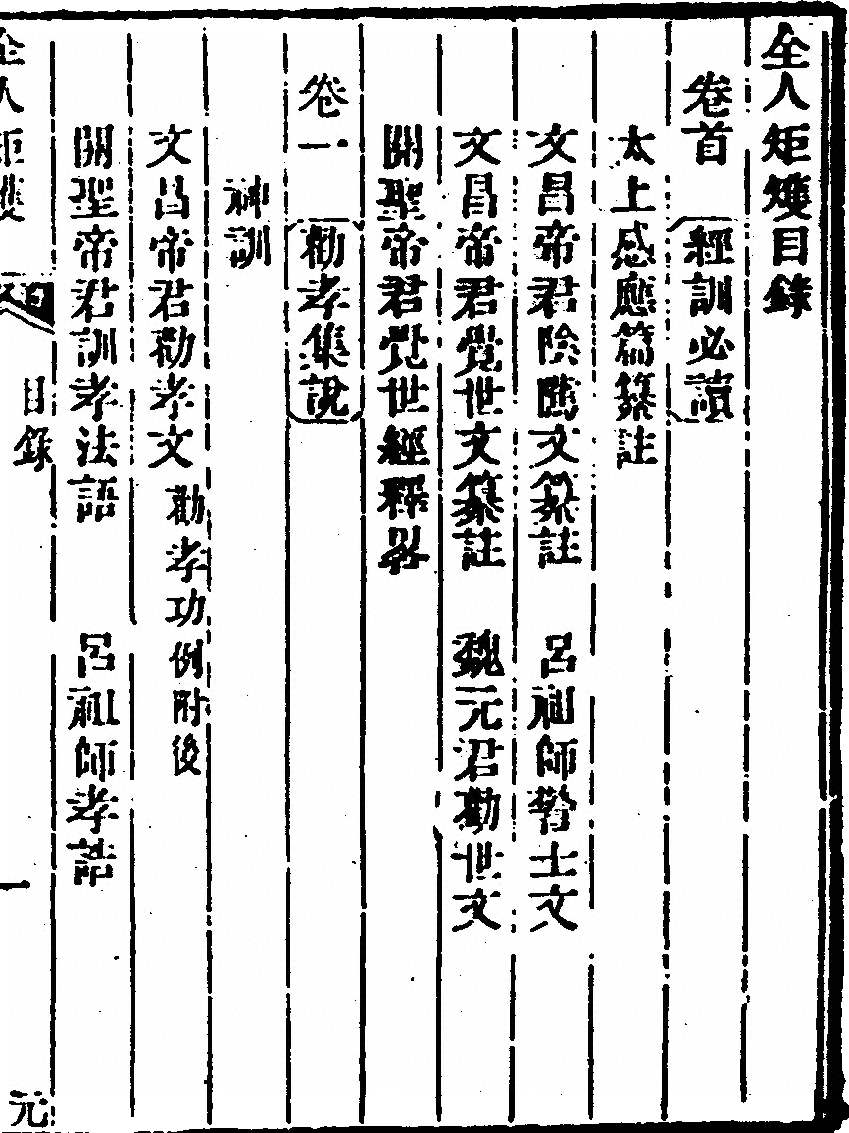 全人矩矱目錄
卷首 經訓必讀
太上感應篇纂註
文昌帝君陰隲文纂註 呂祖師警士文
文昌帝君覺世文纂註 魏元君勸世文
關聖帝君覺世經釋畧
卷一 勸孝集說
神訓
文昌帝君勸孝文 勸孝功例附後
關聖帝君訓孝法語 呂祖師孝誥
全人矩矱 目錄 一 元